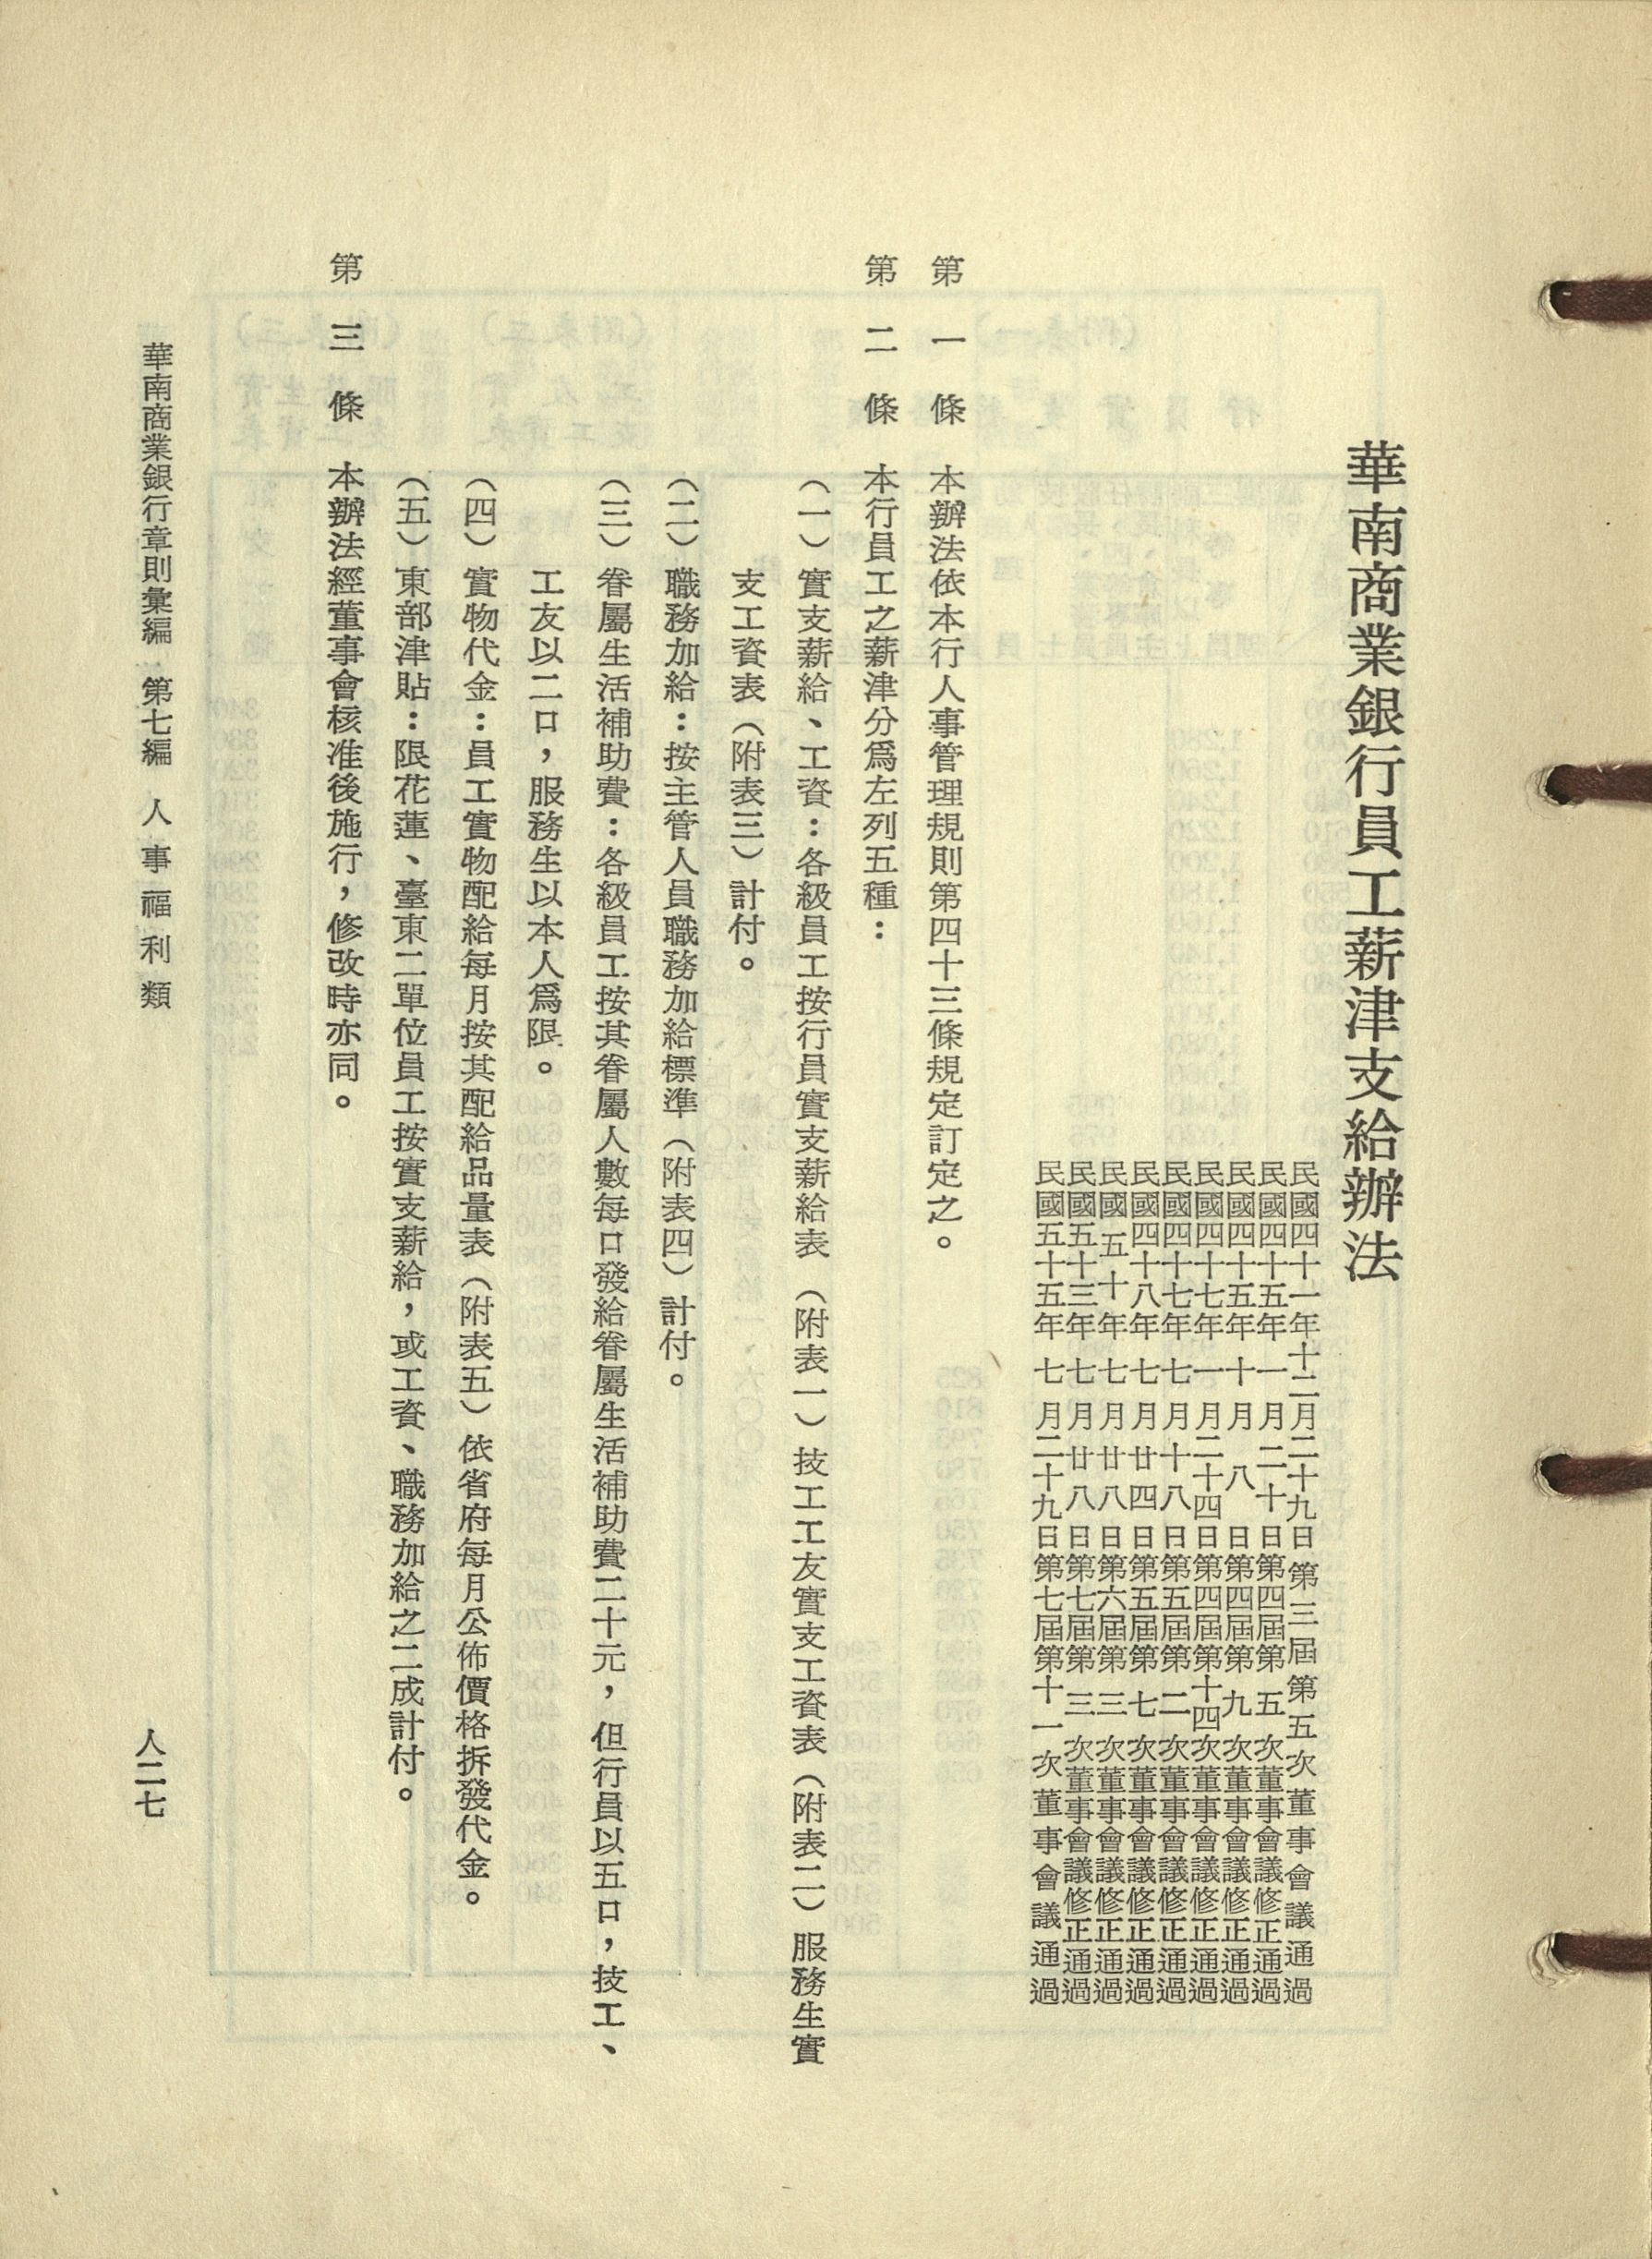 華南商業銀行員工薪津支給辦法
民國四十一年十二月二十九日第三屆第五次董事會議通過
民國四十五年一月二十日第四屆第五次董事會議修正通過
民國四十五年十月八日第四屆第九次董事會議修正通過
民國四十七年一月二十四日第四屆第十四次董事會議修正通過
民國四十七年七月十八日第五屆第二次董事會議修正通過
民國四十八年七月廿四日第五屆第七次董事會議修正通過
民國五十年七月廿八日第六屆第三次董事會議修正通過
民國五十三年七月廿八日第七屆第三次董事會議修正通過
民國五十五年七月二十九日第七屆第十一次董事會議通過
第一條　本辦法依本行人事管理規則第四十三條規定訂定之。
第二條　本行員工之薪津分爲左列五種：
（一）實支薪給、工資：各級員工按行員實支薪給表（附表一）技工工友實支工資表（附表二）服務生實
支工資表（附表三）計付。
（二）職務加給：按主管人員職務加給標準（附表四）計付。
（三）眷屬生活補助費：各級員工按其眷屬人數每口發給眷屬生活補助費二十元，但行員以五口，技工、
工友以二口，服務生以本人爲限。
（四）實物代金：員工實物配給每月按其配給品量表（附表五）依省府每月公佈價格拆發代金。
（五）東部津貼：限花蓮、臺東二單位員工按實支薪給，或工資、職務加給之二成計付。
第三條　本辦法經董事會核准後施行，修改時亦同。
華南商業銀行章則彙編　第七編　人事福利類
人二七